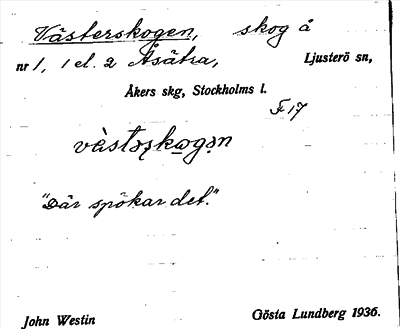 Västerskogen, skog å
nr 1, 1 el. 2 Åsätra, Ljusterö sn,
Åkers skg, Stockholms l.
F 17
"Där spökar det."
John Westin Gösta Lundberg 1936.